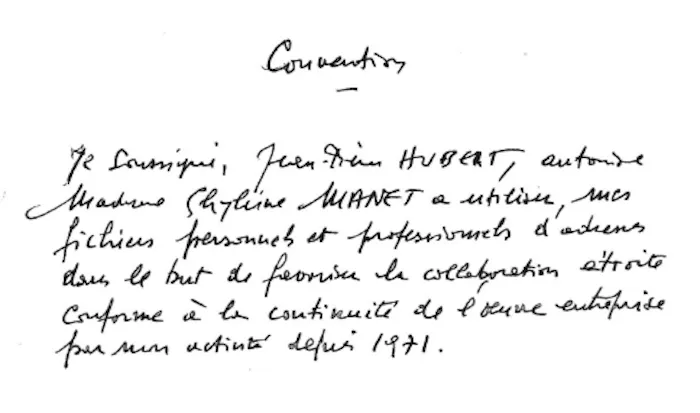 Convention
Je soussigné, Jean-Pierre HUBERT, autorise
Madame Ghylaine MANET a utiliser, mes
fichiers personnels et professionnels d'adresses
dans le but de favoriser la collaboration étroite
conforme à la continuité de l'œuvre entreprise
par mon activité depuis 1971.